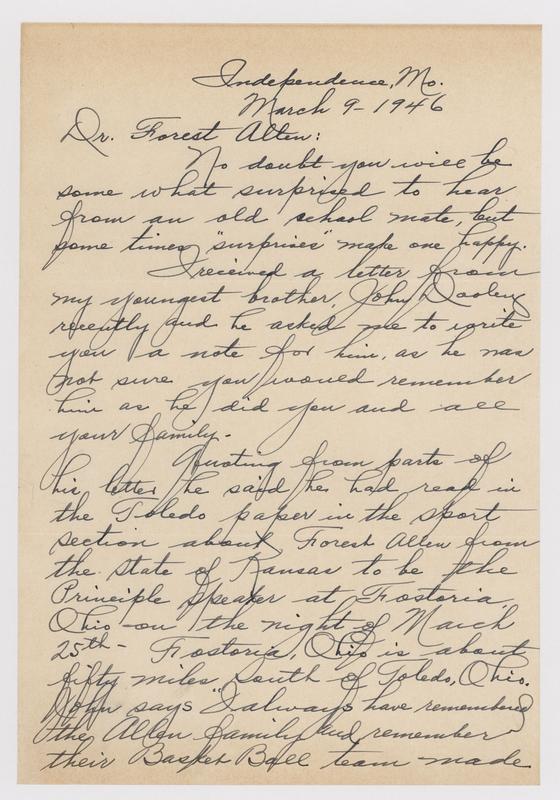 Independence, Mo.
March 9-1946
Dr. Forest Allen:
No doubt you will be
some what surprised to hear
from an old school mate, but
some times "surprises" make one happy.
I received a letter from
my youngest brother, John Dooley
recently and he asked me to write
you a note for him, as he was
not sure you would remember
him as he did you and all
your family.
Quoting from parts of
his letter he said he had read in
the Toledo paper in the sport
section about Forest Allen from
the state of Kansas to be the
Principle Speaker at Fostoria,
Ohio - on the night of March
25th - Fostoria, Ohio is about
fifty miles south of Toledo, Ohio.
John says "I always have remembered
the Allen family and remember
their Basket Ball team made